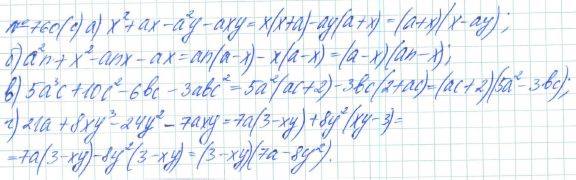 № 760(с) а) x²+ax-a²y-axy=x(x+a)-ay(a+x)=(a+x)(x-ay);
б) a²n+x²-anx-ax=an(a-x)-x(a-x)=(a-x)(an-x);
в) 5a³c+10c²-6bc-3abc²=5a²(ac+2)-3bc(2+ac)=(ac+2)(5a²-3bc);
г) 21a+8xy³-24y²-7axy=7a(3-xy)+8y²(xy-3)=
=7a(3-xy)-8y²(3-xy)=(3-xy)(7a-8y²).